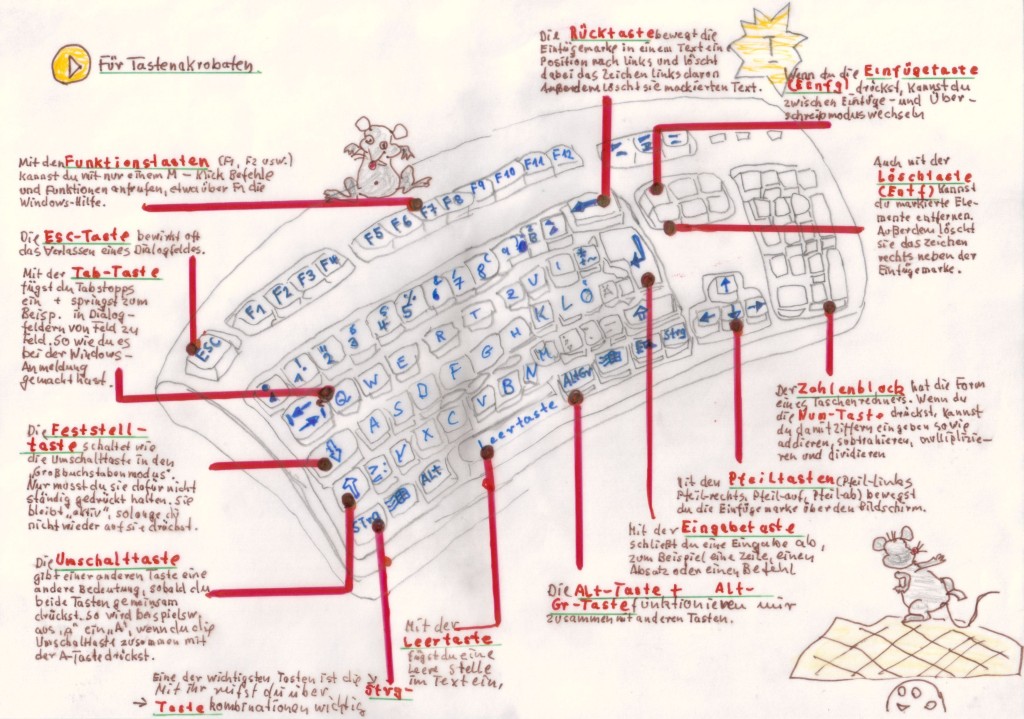 Für Tastenakrobaten
Die Rücktaste bewegt die
Einfügemarke in einem Text eine
Position nach links und löscht
dabei das Zeichen links davon
Außerdem löscht sie markierten Text.
!
Wenn du die Einfügetaste
(Einfg) drückst, kannst du
zwischen Einfüge- und Über-
schreibmodus wechseln
Mit den Funktionstasten (F1, F2 usw.)
kannst du mit nur einem M-Klick Befehle
und Funktionen anrufen, etwa über F1 die
Windows-Hilfe.
Auch mit der
Löschtaste
(Entf) kannst
du markierte Ele-
mente entfernen.
Außerdem löscht
sie das zeichen
rechts neben der
Einfügemarke.
Die Esc-Taste bewirkt oft
das Verlassen eines Dialogfeldes.
Mit der Tab-Taste
fügst du Tabstopps
ein + springst zum
Beisp. in Dialog-
feldern von Feld zu
Feld. So wie du es
bei der Windows-
Anmeldung
gemacht hast.
Die Feststell-
taste schaltet wie
die Umschalttaste in den
"Großbuchstabenmodus".
Nur musst du sie dafür nicht
ständig gedrückt halten. Sie
bleibt "aktiv", solange du
nicht wieder auf sie drückst.
Die Umschalttaste
gibt einer anderen Taste eine
andere Bedeutung, sobald du
beide Tasten gemeinsam
drückst. So wird beispielsw.
aus "a" ein "A", wenn du die
Umschalttaste zusammen mit
der A-Taste drückst.
ESC
F1 F2 F3 F4
F5 F6 F7 F8
F9 F10 F11 F12
Q W E R T Z U I
A S D F G H K L Ö
X C V B N M
Strg Alt Leertaste AltGr Strg
Der Zahlenblock hat die Form
eines Taschenrechners. Wenn du
die Num-Taste drückst, kannst
du damit Ziffern eingeben sowie
addieren, subtrahieren, multiplizie-
ren und dividieren
Mit den Pfeiltasten (Pfeil-links
Pfeil-rechts, Pfeil-auf, Pfeil-ab) bewegst
du die Einfügemarke über den Bildschirm.
Mit der Eingabetaste
schließt du eine Eingabe ab,
zum Beispiel eine Zeile, einen
Absatz oder einen Befehl
Die Alt-Taste + Alt-
Gr-Taste funktionieren nur
zusammen mit anderen Tasten.
Mit der
Leertaste
fügst du eine
Leere Stelle
im Text ein,
Eine der wichtigsten Tasten ist die
Mit ihr rufst du über Strg-
→ Taste kombinationen wichtig